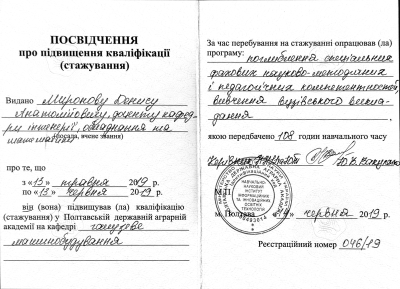 ПОСВІДЧЕННЯ
про підвищення кваліфікації
(стажування)
Видано Миронову Денису
Анатолійовичу, доценту кафед-
ри інженерії, обладнання та
математики
(посада, вчене звання)
про те, що
з «13» травня 2019 р.
по «13» червня 2019 р.
він (вона) підвищував (ла) кваліфікацію
(стажування) у Полтавській державній аграрній
академії на кафедрі галузеве
машинобудування
За час перебування на стажуванні опрацював (ла)
програму: поглиблення спеціальних
фахових науково-методичних
і педагогічних компетентностей,
вивчення вузівського виклa-
дання
якою передбачено 108 годин навчального часу
Керівник
М.П.
м. Полтава червня 2019 р.
Реєстраційний номер 046/19